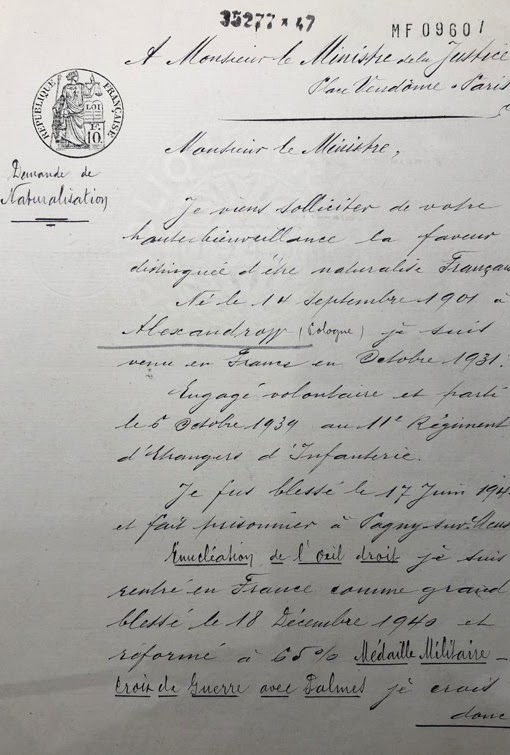 35277 x 47
MF 0960/
A Monsieur le Ministre de la Justice
Place Vendôme - Paris
RÉPUBLIQUE FRANÇAISE
LOI
10
Demande de
Naturalisation
Monsieur le Ministre,
Je viens solliciter de votre
haute bienveillance la faveur
distinguée d'être naturalisé Français
Né le 14 Septembre 1901 à
(Cologne) je suis
venu en France en Octobre 1931.
Engagé volontaire et parti
le 6 Octobre 1939 au 11e Régiment
d'Etrangers d'Infanterie.
Je fus blessé le 17 Juin 194
et fait prisonnier à Pagny-sur-Meus
Enucléation de l'œil droit je suis
rentré en France comme grand
blessé le 18 Décembre 1940 et
réformé à 65% Médaille Militaire -
Croix de Guerre avec Palmes je crois
donc